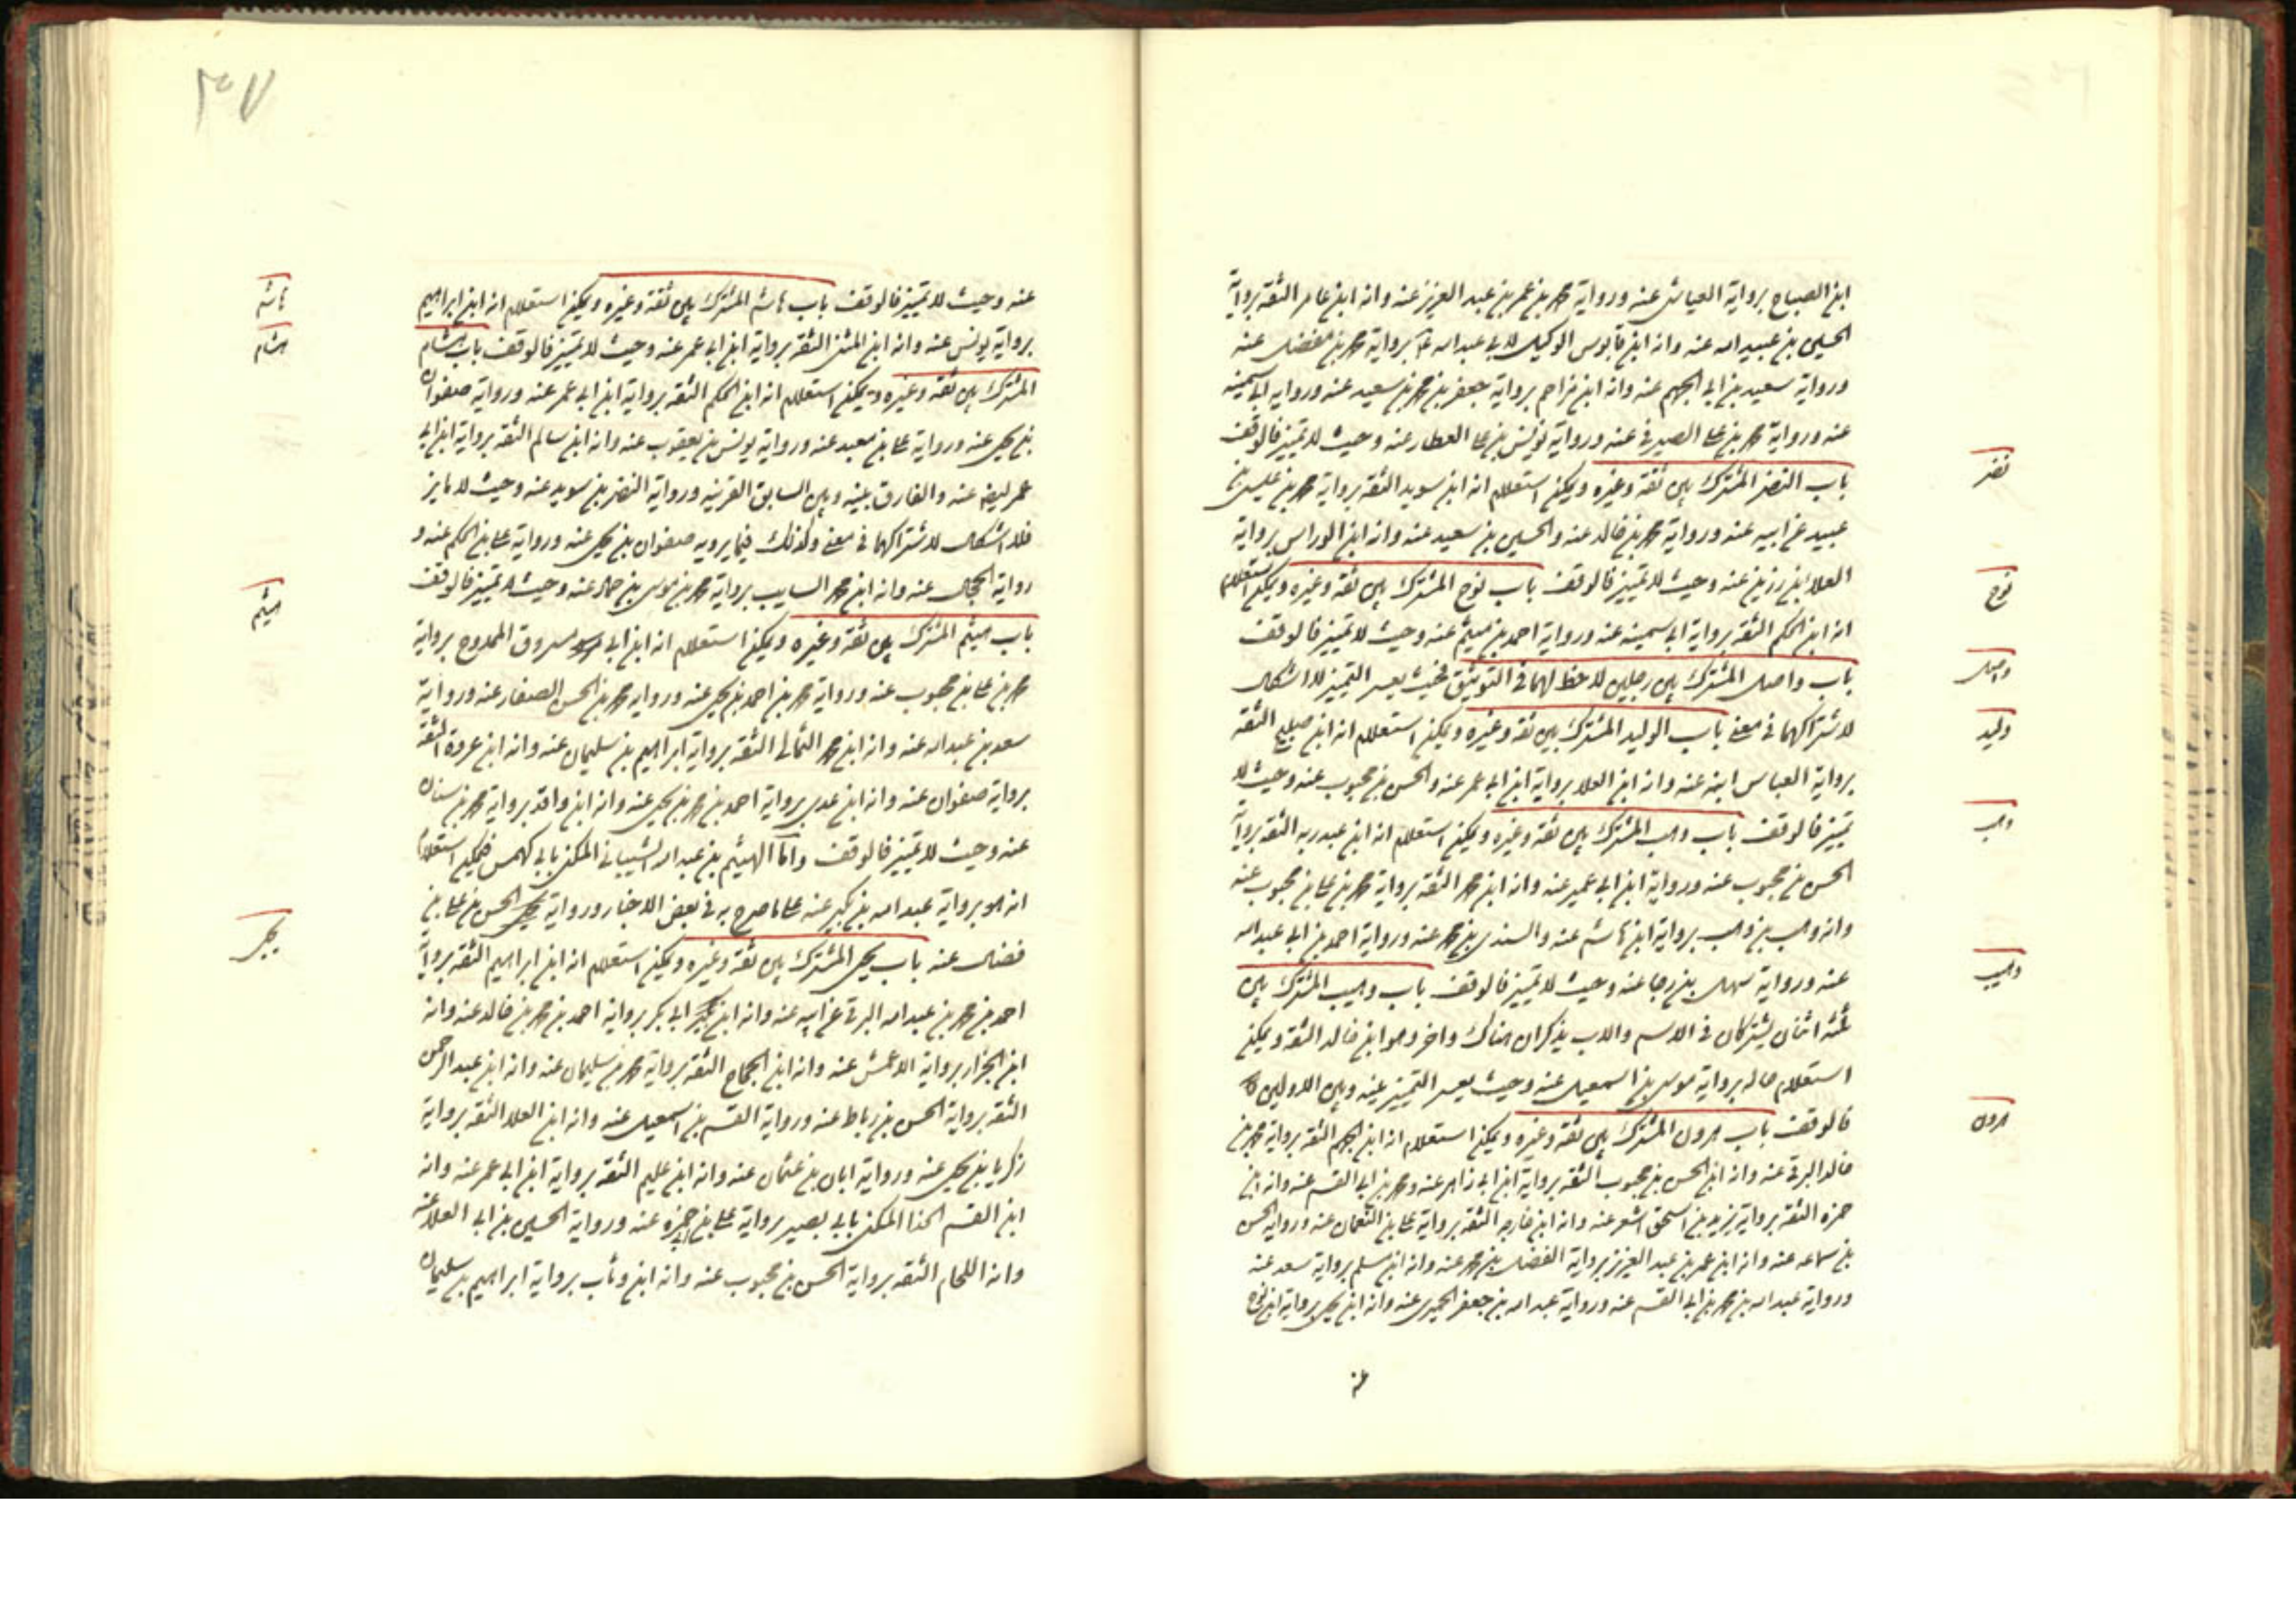 ابن الصباح برواية العياشي عنه ورواية محمد بن عمر بن عبد العزيز عنه وانه ابن عامر الثقة برواية
الحسين بن عبيد الله عنه وانه ابن قابوس الوكيل لابي عبد الله برواية محمد بن مفضل عنه
ورواية سعيد بن ابي الجهم عنه وانه ابن مزاحم برواية جعفر بن محمد بن سعيد عنه ورواية ابي سمينه
عنه ورواية محمد بن علي الصيرفي عنه ورواية يونس بن علي العطار عنه وحيث لا تمييز فالوقف
باب النضر المشترك بين ثقة وغيره ويمكن استعلام انه ابن سويد الثقة برواية محمد بن عيسى بن
عبيد عن ابيه عنه ورواية محمد بن خالد عنه والحسين بن سعيد عنه وانه ابن الوراس برواية
العلا بن رزين عنه وحيث لا تمييز فالوقف باب نوح المشترك بين ثقة وغيره ويمكن استعلام
انه ابن الحكم الثقة برواية ابي سمينه عنه ورواية احمد بن ميثم عنه وحيث لا تمييز فالوقف
باب واصل المشترك بين رجلين لا حظ لهما في التوثيق فحيث يعسر التمييز لا اشكال
لاشتراكهما في معنى باب الوليد المشترك بين ثقة وغيره ويمكن استعلام انه ابن صبيح الثقة
برواية العباس ابنه عنه وانه ابن العلا برواية ابن ابي عمر عنه والحسن بن محبوب عنه وحيث لا
تمييز فالوقف باب وهب المشترك بين ثقة وغيره ويمكن استعلام انه ابن عبد ربه الثقة برواية
الحسن بن محبوب عنه ورواية ابن ابي عمير عنه وانه ابن محمد الثقة برواية محمد بن علي بن محبوب عنه
وانه وهب بن وهب برواية ابن هاشم عنه والسندي بن محمد عنه ورواية احمد بن ابي عبد الله
عنه ورواية سهل بن رجا عنه وحيث لا تمييز فالوقف باب وهيب المشترك بين
ثلثة اثنان يشتركان في الاسم والاب يذكران هناك واخر وهو ابن خالد الثقة ويمكن
استعلام حاله برواية موسى بن اسمعيل عنه وحيث يعسر التمييز بينه وبين الاولين
فالوقف باب هرون المشترك بين ثقة وغيره ويمكن استعلام انه ابن الجهم الثقة برواية محمد بن
خالد البرقي عنه وانه ابن الحسن بن محبوب الثقة برواية ابن ابي زاهر عنه ومحمد بن ابي القسم عنه وانه ابن
حمزه الثقة برواية يزيد بن اسحق شعر عنه وانه ابن خارجه الثقة برواية علي بن النعمان عنه ورواية الحسن
بن سماعه عنه وانه ابن عمر بن عبد العزيز برواية الفضل بن محمد عنه وانه ابن مسلم برواية سعد عنه
ورواية عبد الله بن محمد بن ابي القسم عنه ورواية عبد الله بن جعفر الحميري عنه وانه ابن يحيى برواية ابن نوح
عنه
نضر
نوح
واصل
وليد
وهب
وهيب
هرون
٣٠٧
عنه وحيث لا تمييز فالوقف باب هاشم المشترك بين ثقة وغيره ويمكن استعلام انه ابن ابراهيم
برواية يونس عنه وانه ابن المثنى الثقة برواية ابن ابي عمر عنه وحيث لا تمييز فالوقف باب هشام
المشترك بين ثقة وغيره ويمكن استعلام انه ابن الحكم الثقة برواية ابن ابي عمر عنه ورواية صفوان
بن يحيى عنه ورواية علي بن معبد عنه ورواية يونس بن يعقوب عنه وانه ابن سالم الثقة برواية ابن ابي
عمر ايضا عنه والفارق بينه وبين السابق القرينه ورواية النضر بن سويد عنه وحيث لا مايز
فلا اشكال لاشتراكهما في معنى وكذلك فيما يرويه صفوان بن يحيى عنه ورواية علي بن الحكم عنه و
رواية الحجال عنه وانه ابن محمد السايب برواية محمد بن موسى بن حماد عنه وحيث لا تمييز فالوقف
باب هيثم المشترك بين ثقة وغيره ويمكن استعلام انه ابن ابي مسروق الممدوح برواية
محمد بن علي بن محبوب عنه ورواية محمد بن احمد بن يحيى عنه ورواية محمد بن الحسن الصفار عنه ورواية
سعد بن عبد الله عنه وانه ابن محمد الثمالي الثقة برواية ابراهيم بن سليمان عنه وانه ابن عروة الثقة
برواية صفوان عنه وانه ابن عدي برواية احمد بن محمد بن يحيى عنه وانه ابن واقد برواية محمد بن سنان
عنه وحيث لا تمييز فالوقف واما الهيثم بن عبد الله الشيباني المكنى بابي كهمس فيمكن استعلام
انه هو برواية عبد الله بن بكير عنه علي ما صرح به في بعض الاخبار ورواية الحسن بن علي بن
فضال عنه باب يحيى المشترك بين ثقة وغيره ويمكن استعلام انه ابن ابراهيم الثقة برواية
احمد بن محمد بن عبد الله البرقي عن ابيه عنه وانه ابن ابي بكر برواية احمد بن محمد بن خالد عنه وانه
ابن الجزار برواية الاعمش عنه وانه ابن الحجاج الثقة برواية محمد بن سليمان عنه وانه ابن عبد الرحمن
الثقة برواية الحسن بن رباط عنه ورواية القسم بن اسمعيل عنه وانه ابن العلا الثقة برواية
زكريا بن يحيى عنه ورواية ابان بن عثمان عنه وانه ابن عليم الثقة برواية ابن ابي عمر عنه وانه
ابن القسم الحذا المكنى بابي بصير برواية علي بن حمزه عنه ورواية الحسين بن ابي العلا عنه
وانه اللحام الثقة برواية الحسن بن محبوب عنه وانه ابن وثاب برواية ابراهيم بن سليمان
هاشم
هشام
هيثم
يحيى